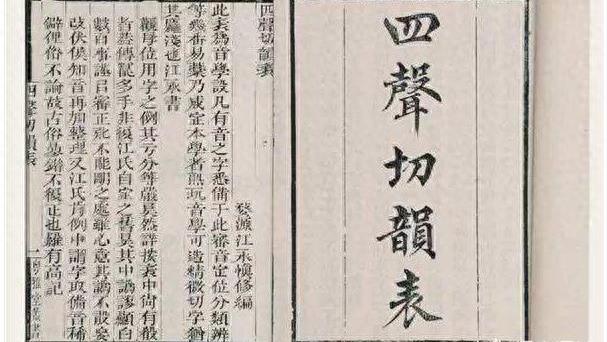 四聲切韻表
四聲切韻表
婺源江永慎修編
此表為音學設凡有音之字悉備于此審音定位分類辨
等幾番易槀乃成定本學者熟玩音學可造精微切字猶
其麤淺也江永書
觀母位用字之例其于分等嚴矣然詳按表中尚有殽
者葢傳多手非復江氏自定之舊矣其中譌謬顯白
數百事謹㠯審正不能剛之處雖心意其譌不敢妄
改伏俟知音再加整理又江氏例中謂字取備音稀
僻俚俗不論故古俗不復正也雖有高記
四聲切韻表
一粤雅堂叢書